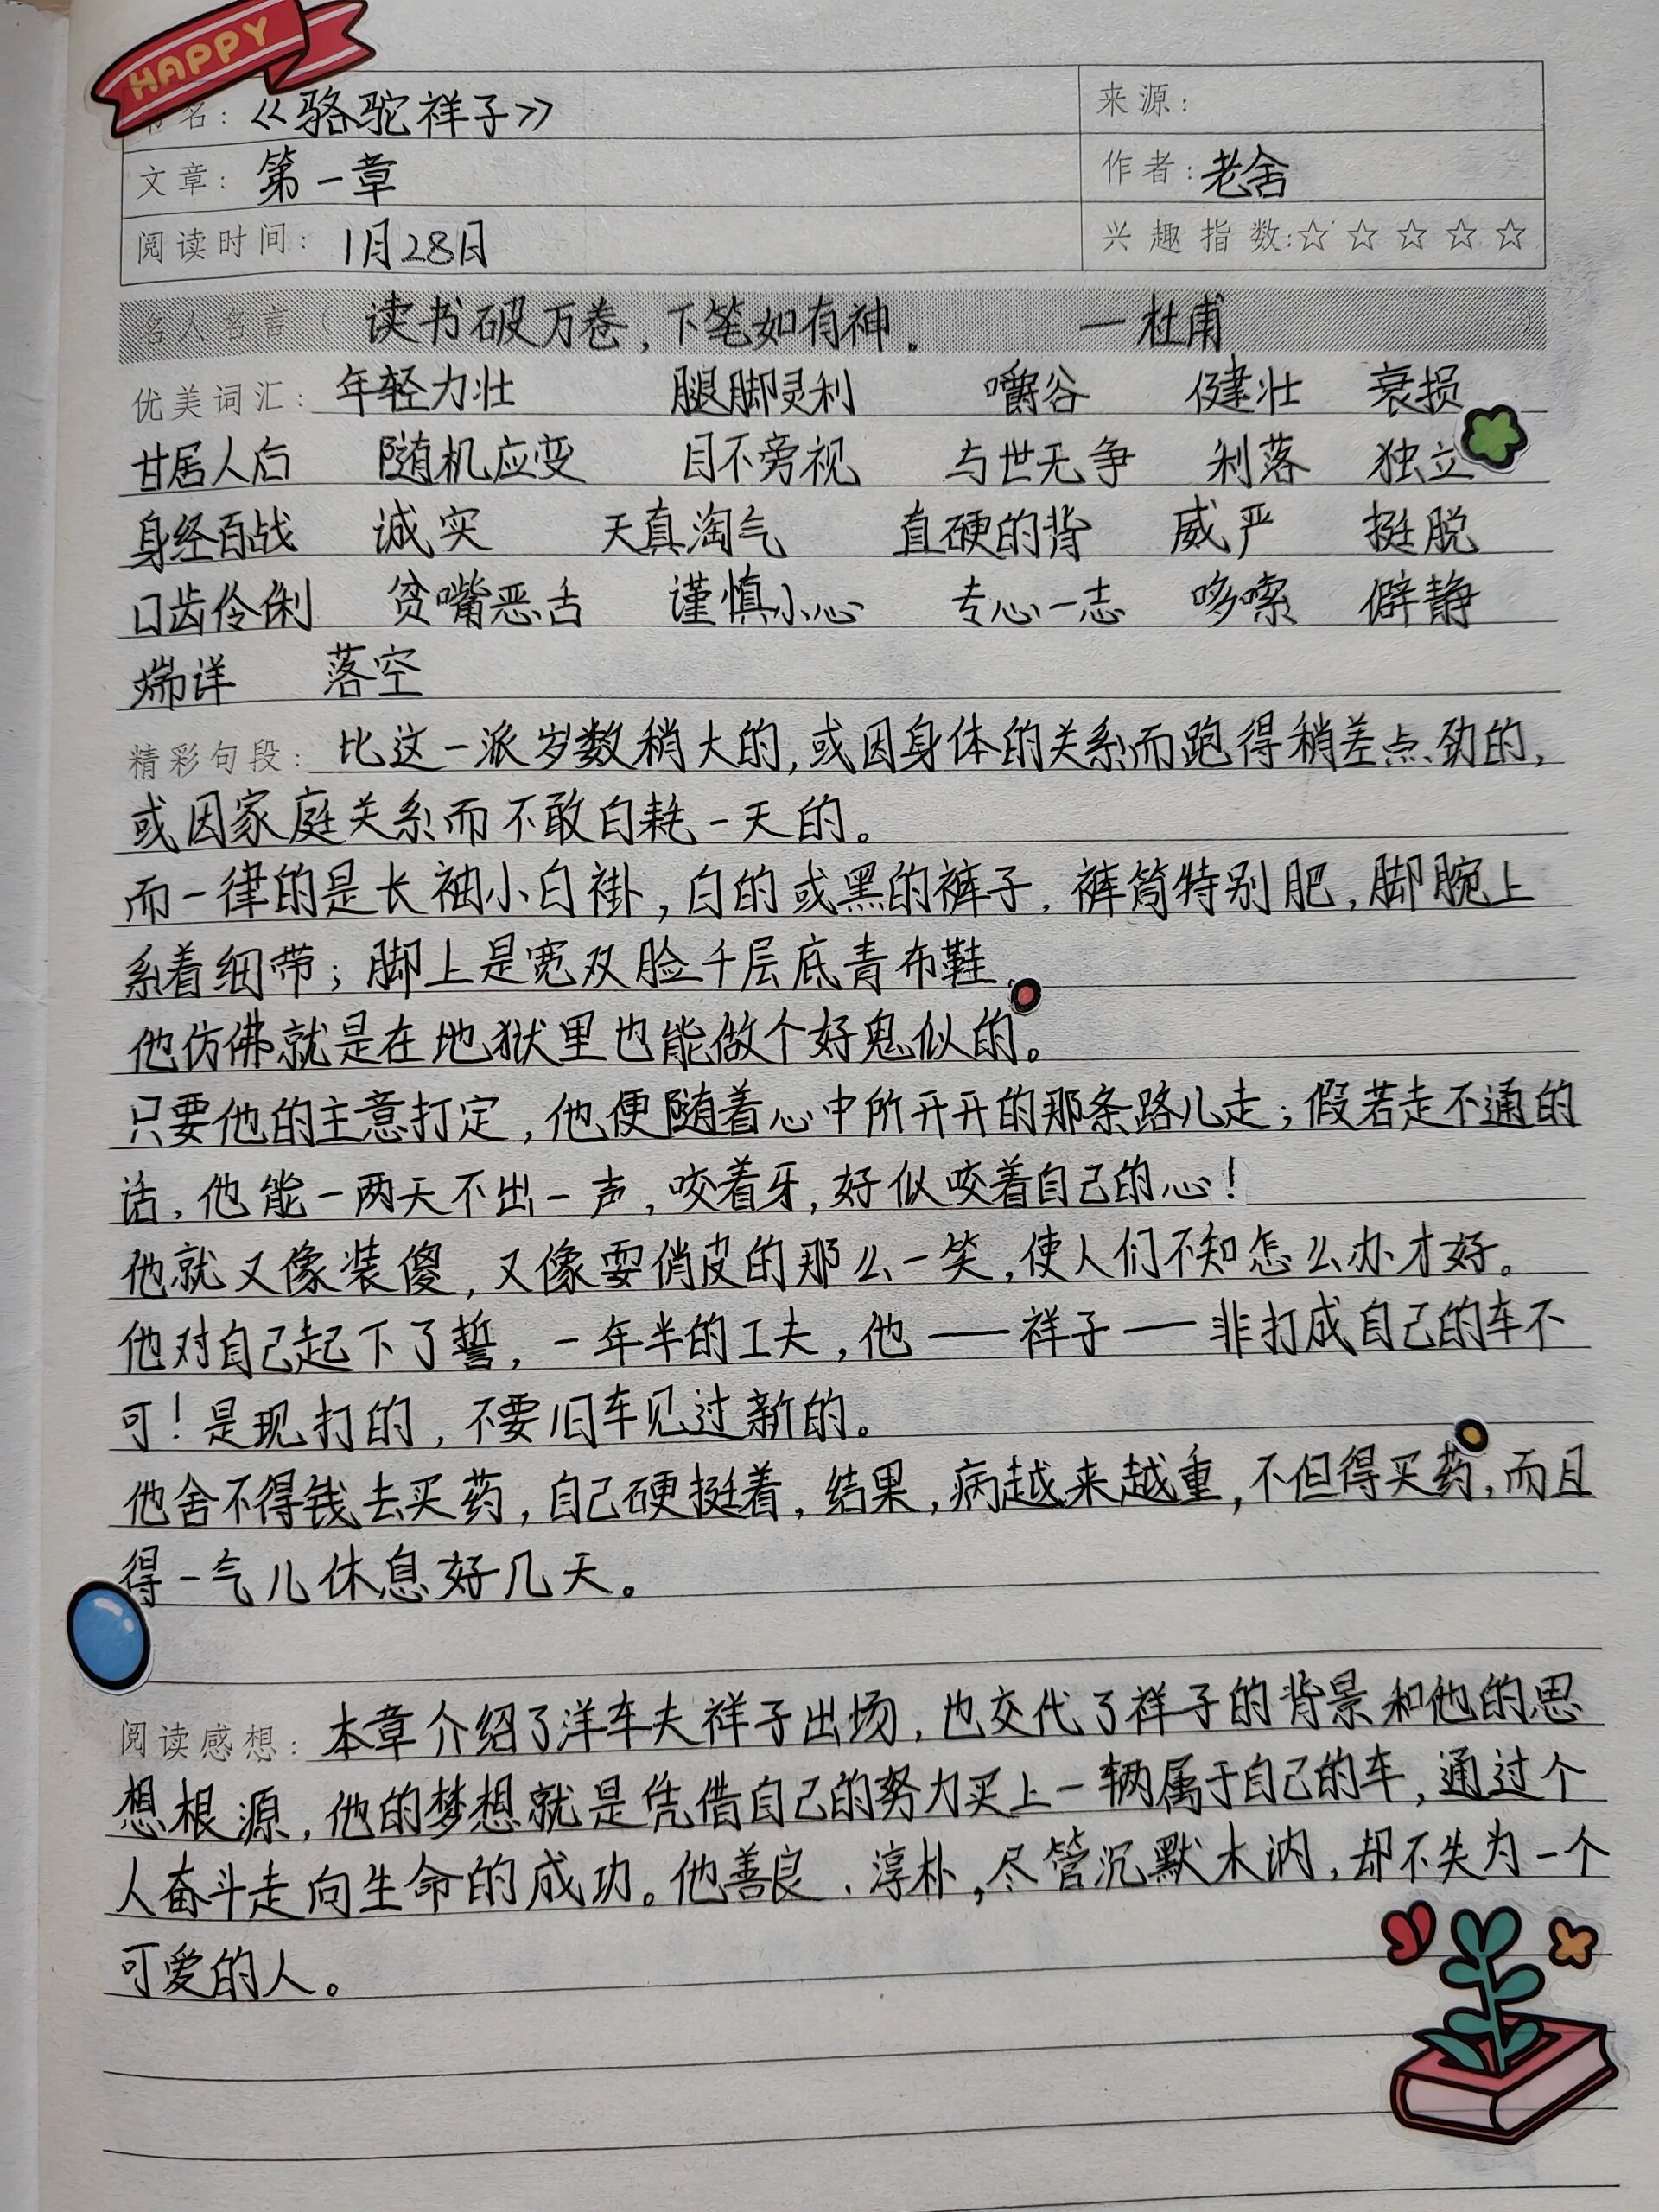 HAPPY
书名：《骆驼祥子》 来源：
文章：第一章 作者：老舍
阅读时间：1月28日 兴趣指数：☆☆☆☆☆
名人名言（读书破万卷，下笔如有神。 —杜甫）
优美词汇：年轻力壮 腿脚灵利 嚼谷 健壮 衰损
甘居人后 随机应变 目不旁视 与世无争 利落 独立
身经百战 诚实 天真淘气 直硬的背 威严 挺脱
口齿伶俐 贫嘴恶舌 谨慎小心 专心一志 哆嗦 僻静
端详 落空
精彩句段：比这一派岁数稍大的，或因身体的关系而跑得稍差点劲的，
或因家庭关系而不敢白耗一天的。
而一律的是长袖小白褂，白的或黑的裤子，裤筒特别肥，脚腕上
系着细带；脚上是宽双脸千层底青布鞋。
他仿佛就是在地狱里也能做个好鬼似的。
只要他的主意打定，他便随着心中所开开的那条路儿走；假若走不通的
话，他能一两天不出一声，咬着牙，好似咬着自己的心！
他就又像装傻，又像耍俏皮的那么一笑，使人们不知怎么办才好。
他对自己起下了誓，一年半的工夫，他——祥子——非打成自己的车不
可！是现打的，不要旧车见过新的。
他舍不得钱去买药，自己硬挺着，结果，病越来越重，不但得买药，而且
得一气儿休息好几天。
阅读感想：本章介绍了洋车夫祥子出场，也交代了祥子的背景和他的思
想根源，他的梦想就是凭借自己的努力买上一辆属于自己的车，通过个
人奋斗走向生命的成功。他善良、淳朴，尽管沉默木讷，却不失为一个
可爱的人。